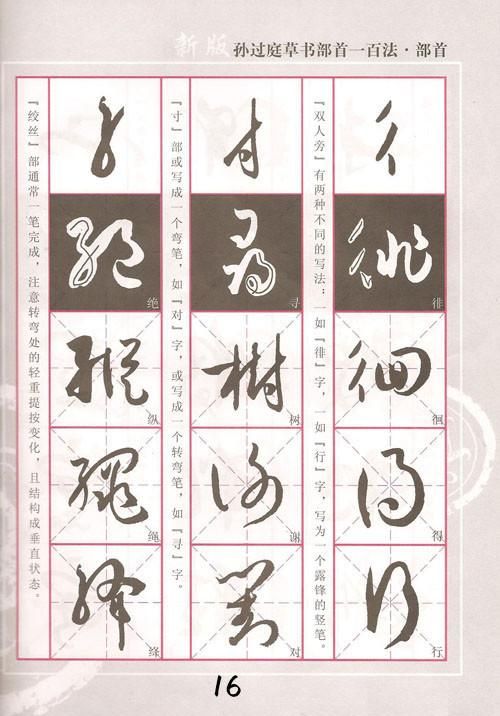 新版 孙过庭草书部首一百法·部首
彳
徘
徊
得
行
『双人旁』有两种不同的写法；一如『徘』字，一如『行』字，写为一个露锋的竖笔。
寸
寻
树
谢
对
『寸』部或写成一个弯笔，如『对』字，或写成一个转弯笔，如『寻』字。
纟
绝
纵
绳
绛
『绞丝』部通常一笔完成，注意转弯处的轻重提按变化，且结构成垂直状态。
16